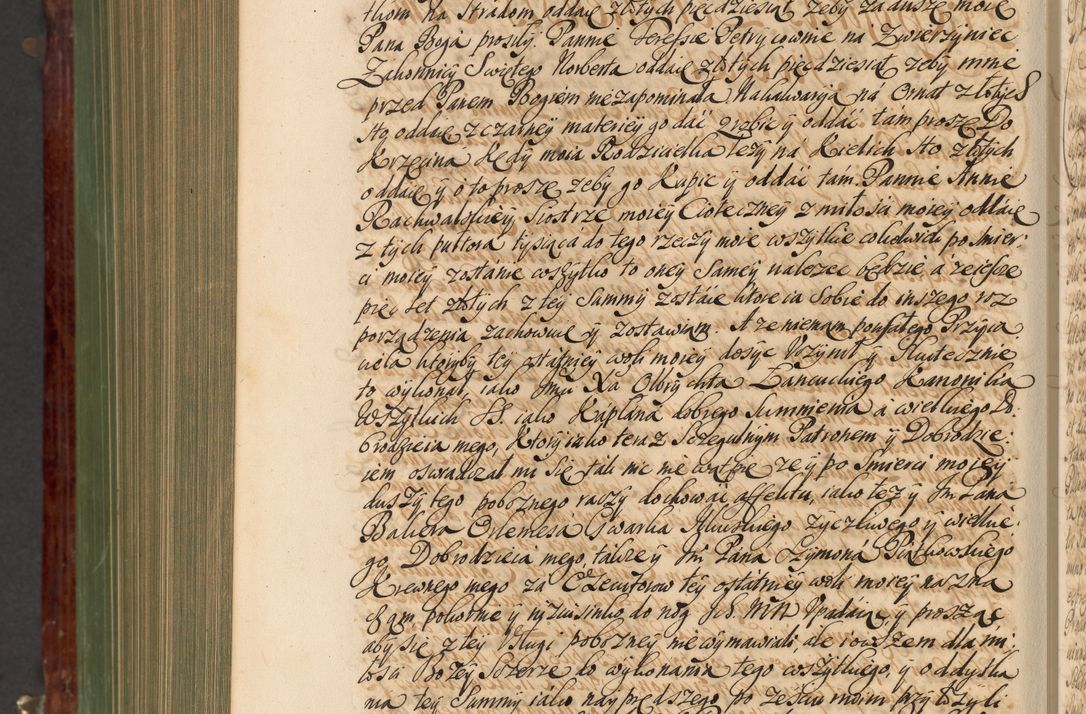 tkom na Stradom oddaię złotych pięcdziesiąt zeby za duszę moię
Pana Boga prosiły. Pannie Teressie Petrycownie na Zwierzyniec
Zakonnicy Swiętego Norberta oddaię złotych pięcdziesiąt zeby mnie
przed Panem Bogiem nie zapominała, Na Kalwaryą na Ornat złotych
sto oddaię, z czarney materiey go dac zrobic y oddac tam proszę Do
Krzęcina kędy moia Rodzicielka lezy na Kielich sto złotych
oddaię y o to proszę zeby go kupic y oddac tam. Pannie Annie
Rachwałowskiey Siostrze moiey Cioteczney z miłosci moiey oddaię
z tych pułtora tysiąca do tego rzeczy moie wszytkie cokolwiek po smier,
ci moiey zostanie wszytko to oney samey nalezec będzie a ieszcze
pięc set złotych z tey Summy zostaie ktore ia sobie do inszego roz
porządzenia zachowuię y zostawiam. A ze nie mam poufałego Przyia
ciela ktoryby tey ostatniey woli moiey dosyc uczynił y skutecznie
to wykonał, iako Jmci Xa Olbrychta Łancuckiego Kanonika
Wszytkich SS. iako Kapłana dobrego Summienia a wielkiego Do
brodzieia mego, ktory iako teraz Szczegulnym Patronem y Dobrodzie.
iem oswiadczał mi się tak nic nie wątpię ze y po smierci moiey
duszy tego poboznego raczy dochowac affektu, iako tez y Jm Pana
Baltera Orlemesa Gwarka Ilkuskiego zyczliwego y wielkie.
go Dobrodzieia mego, takze y Jm Pana Szymona Piątkowskiego
Krewnego mego za Exekutorow tey ostatniey woli moiey nazna
czam pokornie y nizusinko do nog Ich MM upadaię y proszę
aby się z tey usługi pobozney nie wymawiali, ale iowszem dla mi,
łosci Bozey szczerze do wykonania tego wszytkiego, y oddyska
nia tey Summy iako nayprędszego po zesciu moim przyłozyli